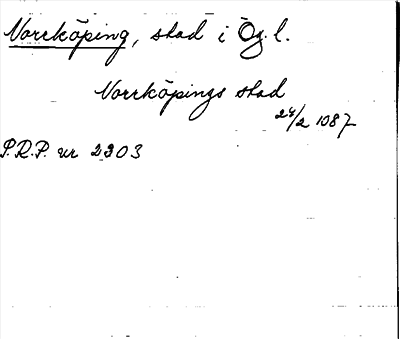 Norrköping, stad i Ög. l.
Norrköpings stad
24/2 1087
P.R.P. nr 2303